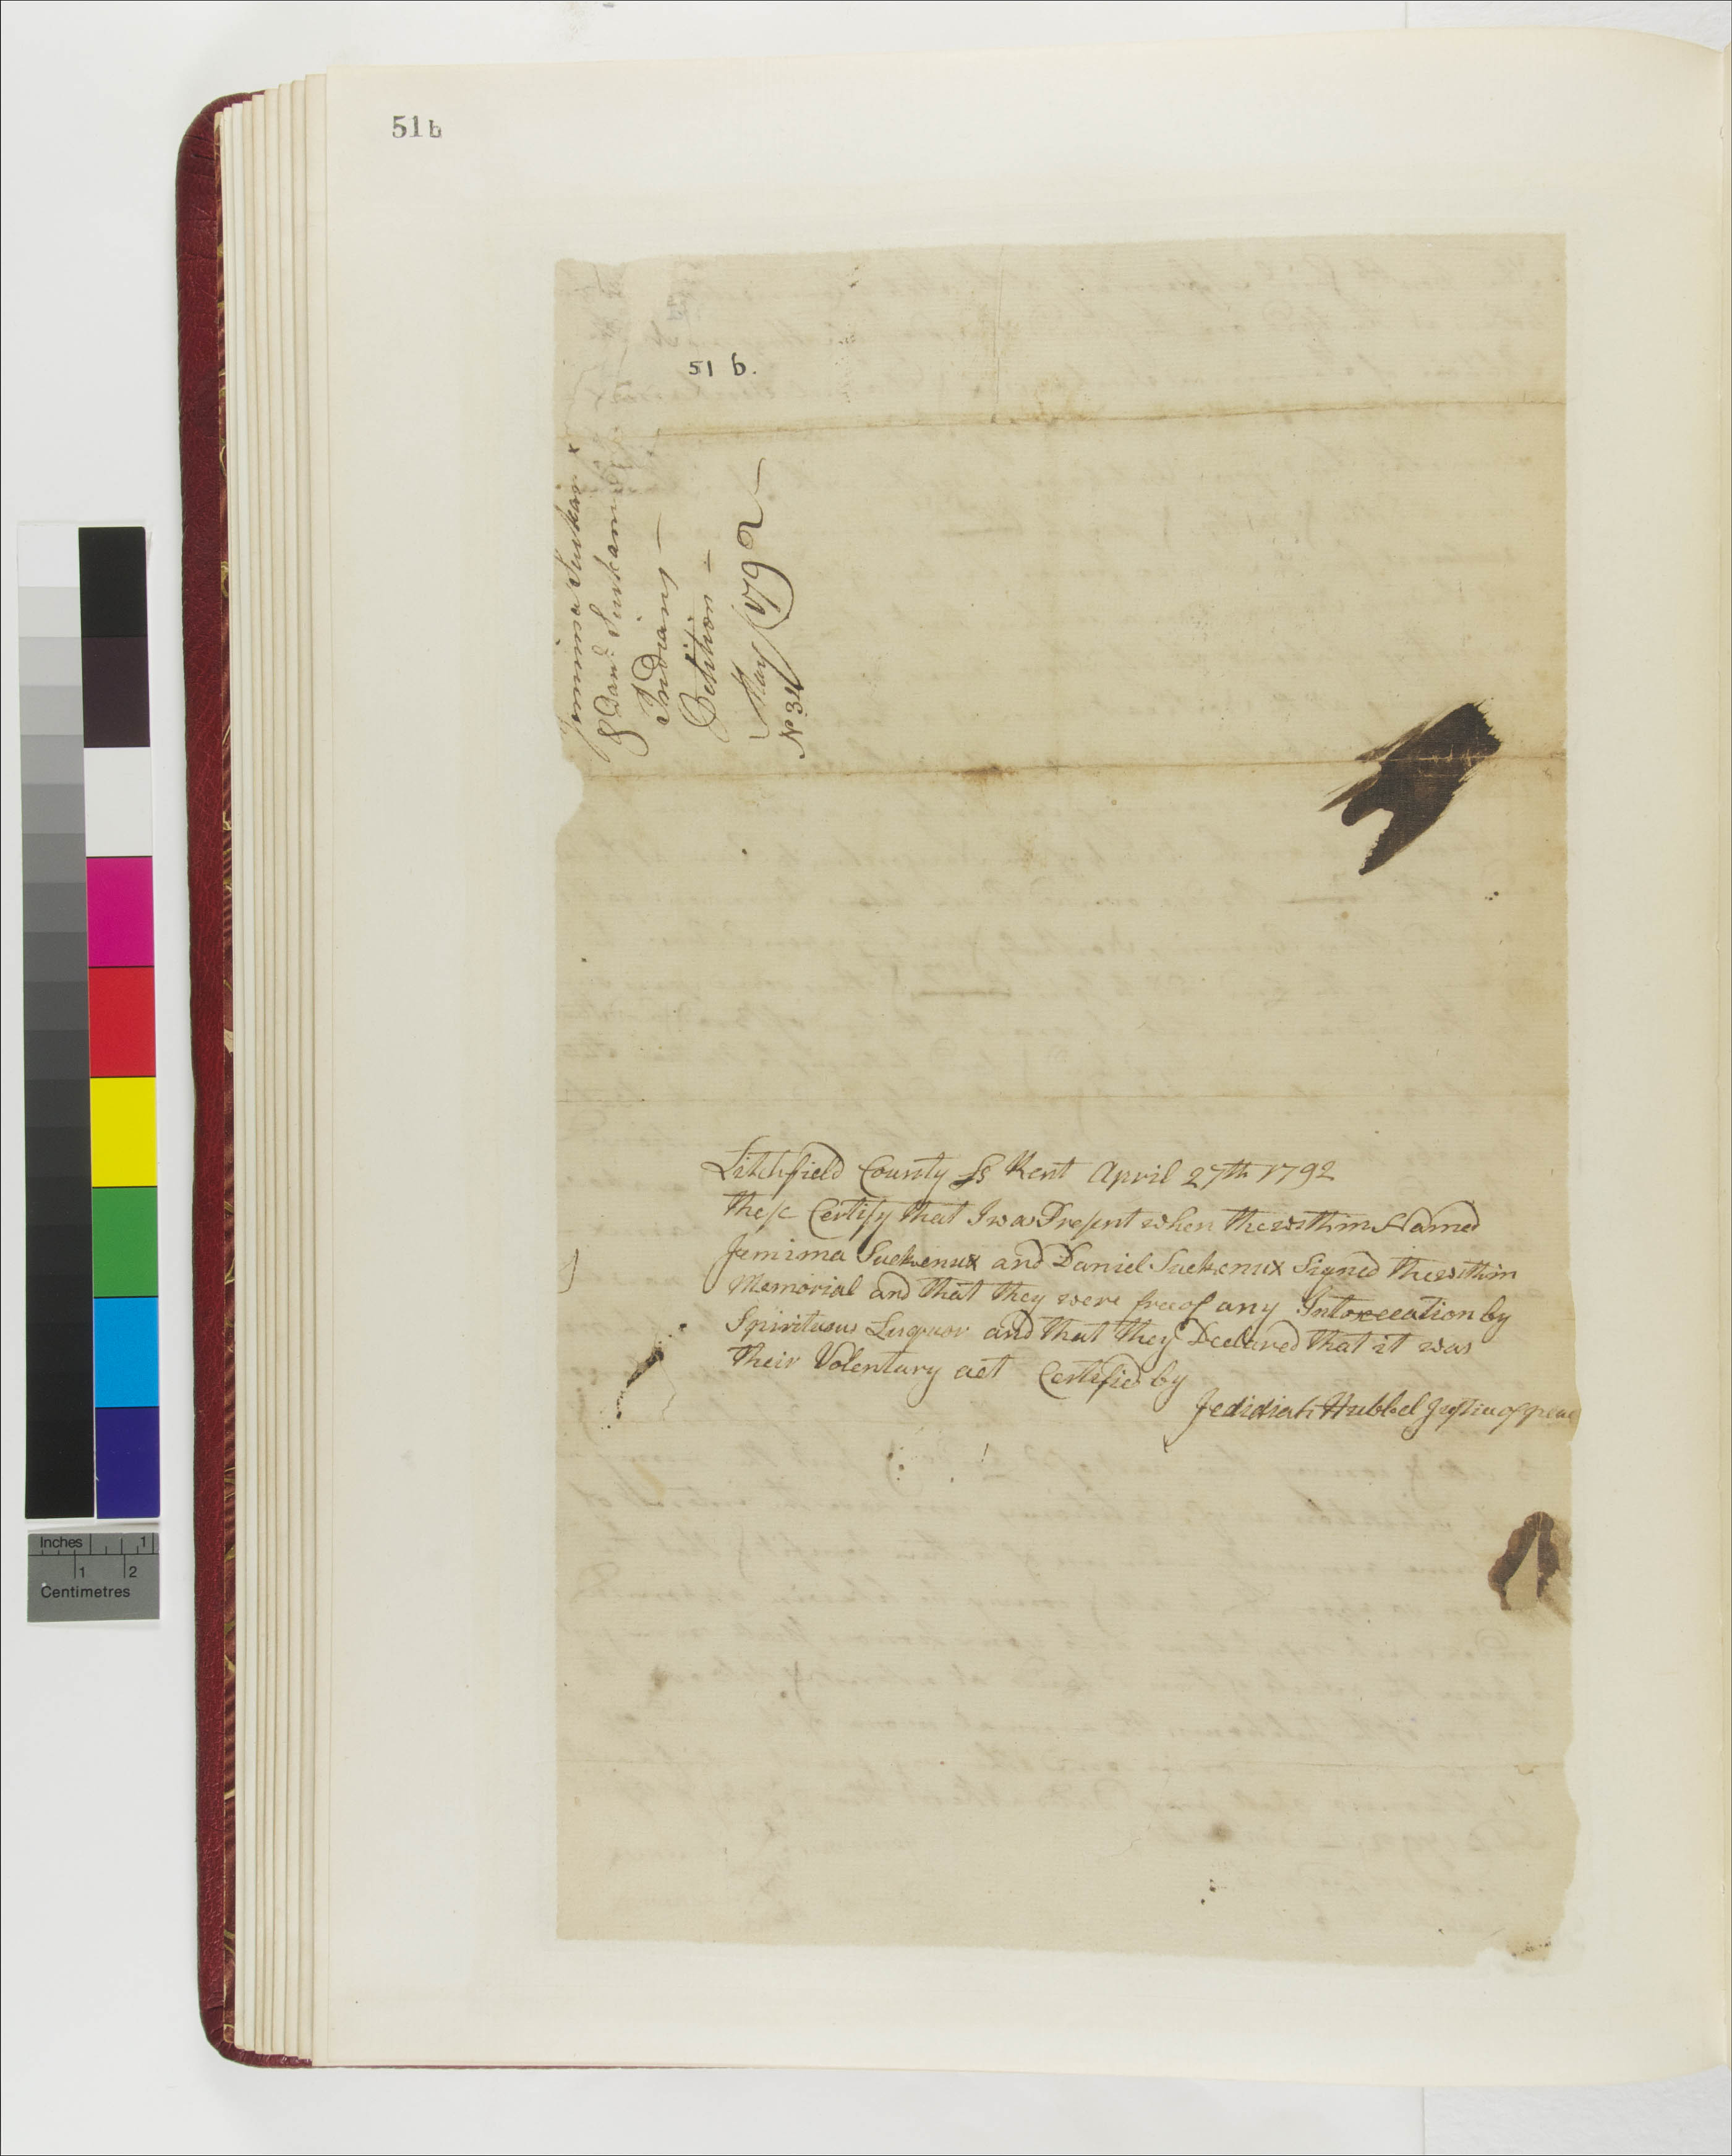 51b
51 b.
Jemima Suckanux
& Dan:ˡ Suckanux
Indians —
Petition —
May 1792 —
Nº 34
Litchfield County Ss Kent April 27th 1792
These Certify that I was Present when the within Named
Jemima Suckenux and Daniel Suckenux Signed the within
Memorial and that they were free of any Intoxecation by
Spirituous Luquor and that they Declared that it was
their Volentary act Certified by
Jedidiah Hubbel Justice of peace
Inches 1
1 2
Centimetres